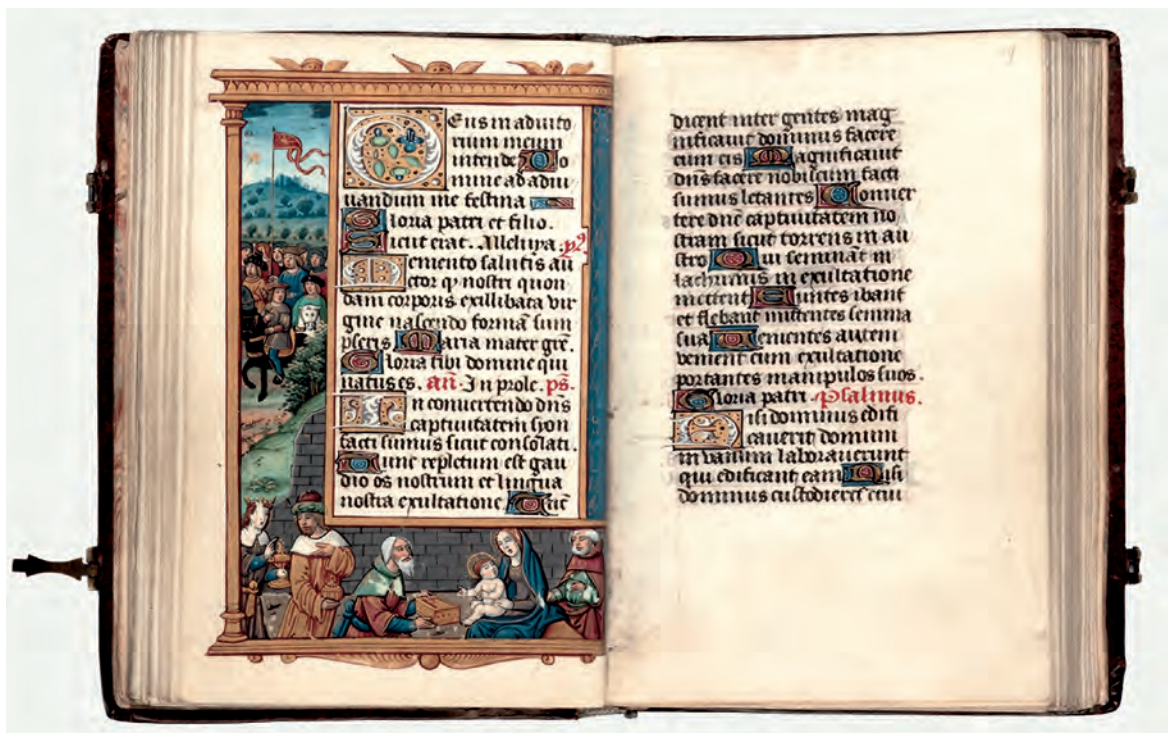 Eus in adiuto
rium meum
intende Do
mine ad adiu
uandum me festina
Gloria patri et filio.
Sicut erat. Alleluya. ps.
Memento salutis au
ctor qͥ nostri quon
dam corporis exillibata vir
gine nascendo formā sum
pseris Maria mater grē.
Gloria tibi domine qui
natus es. añ. In prole. ps̄.
In conuertendo dn̄s
captiuitatem syon
facti sumus sicut consolati.
Tunc repletum est gau
dio os nostrum et lingua
nostra exultatione Tūc
dicent inter gentes mag
nificauit dominus facere
cum eis Magnificauit
dn̄s facere nobiscum facti
sumus letantes Conuer
tere dn̄e captiuitatem no
stram sicut torrens in au
stro Qui semināt in
lachrimis in exultatione
mettent Euntes ibant
et flebant mittentes semina
sua Uenientes autem
venient cum exultatione
portantes manipulos suos.
Gloria patri. Psalmus.
Nisi dominus edifi
cauerit domum
in vanum laborauerunt
qui edificant eam Nisi
dominus custodierit ciui